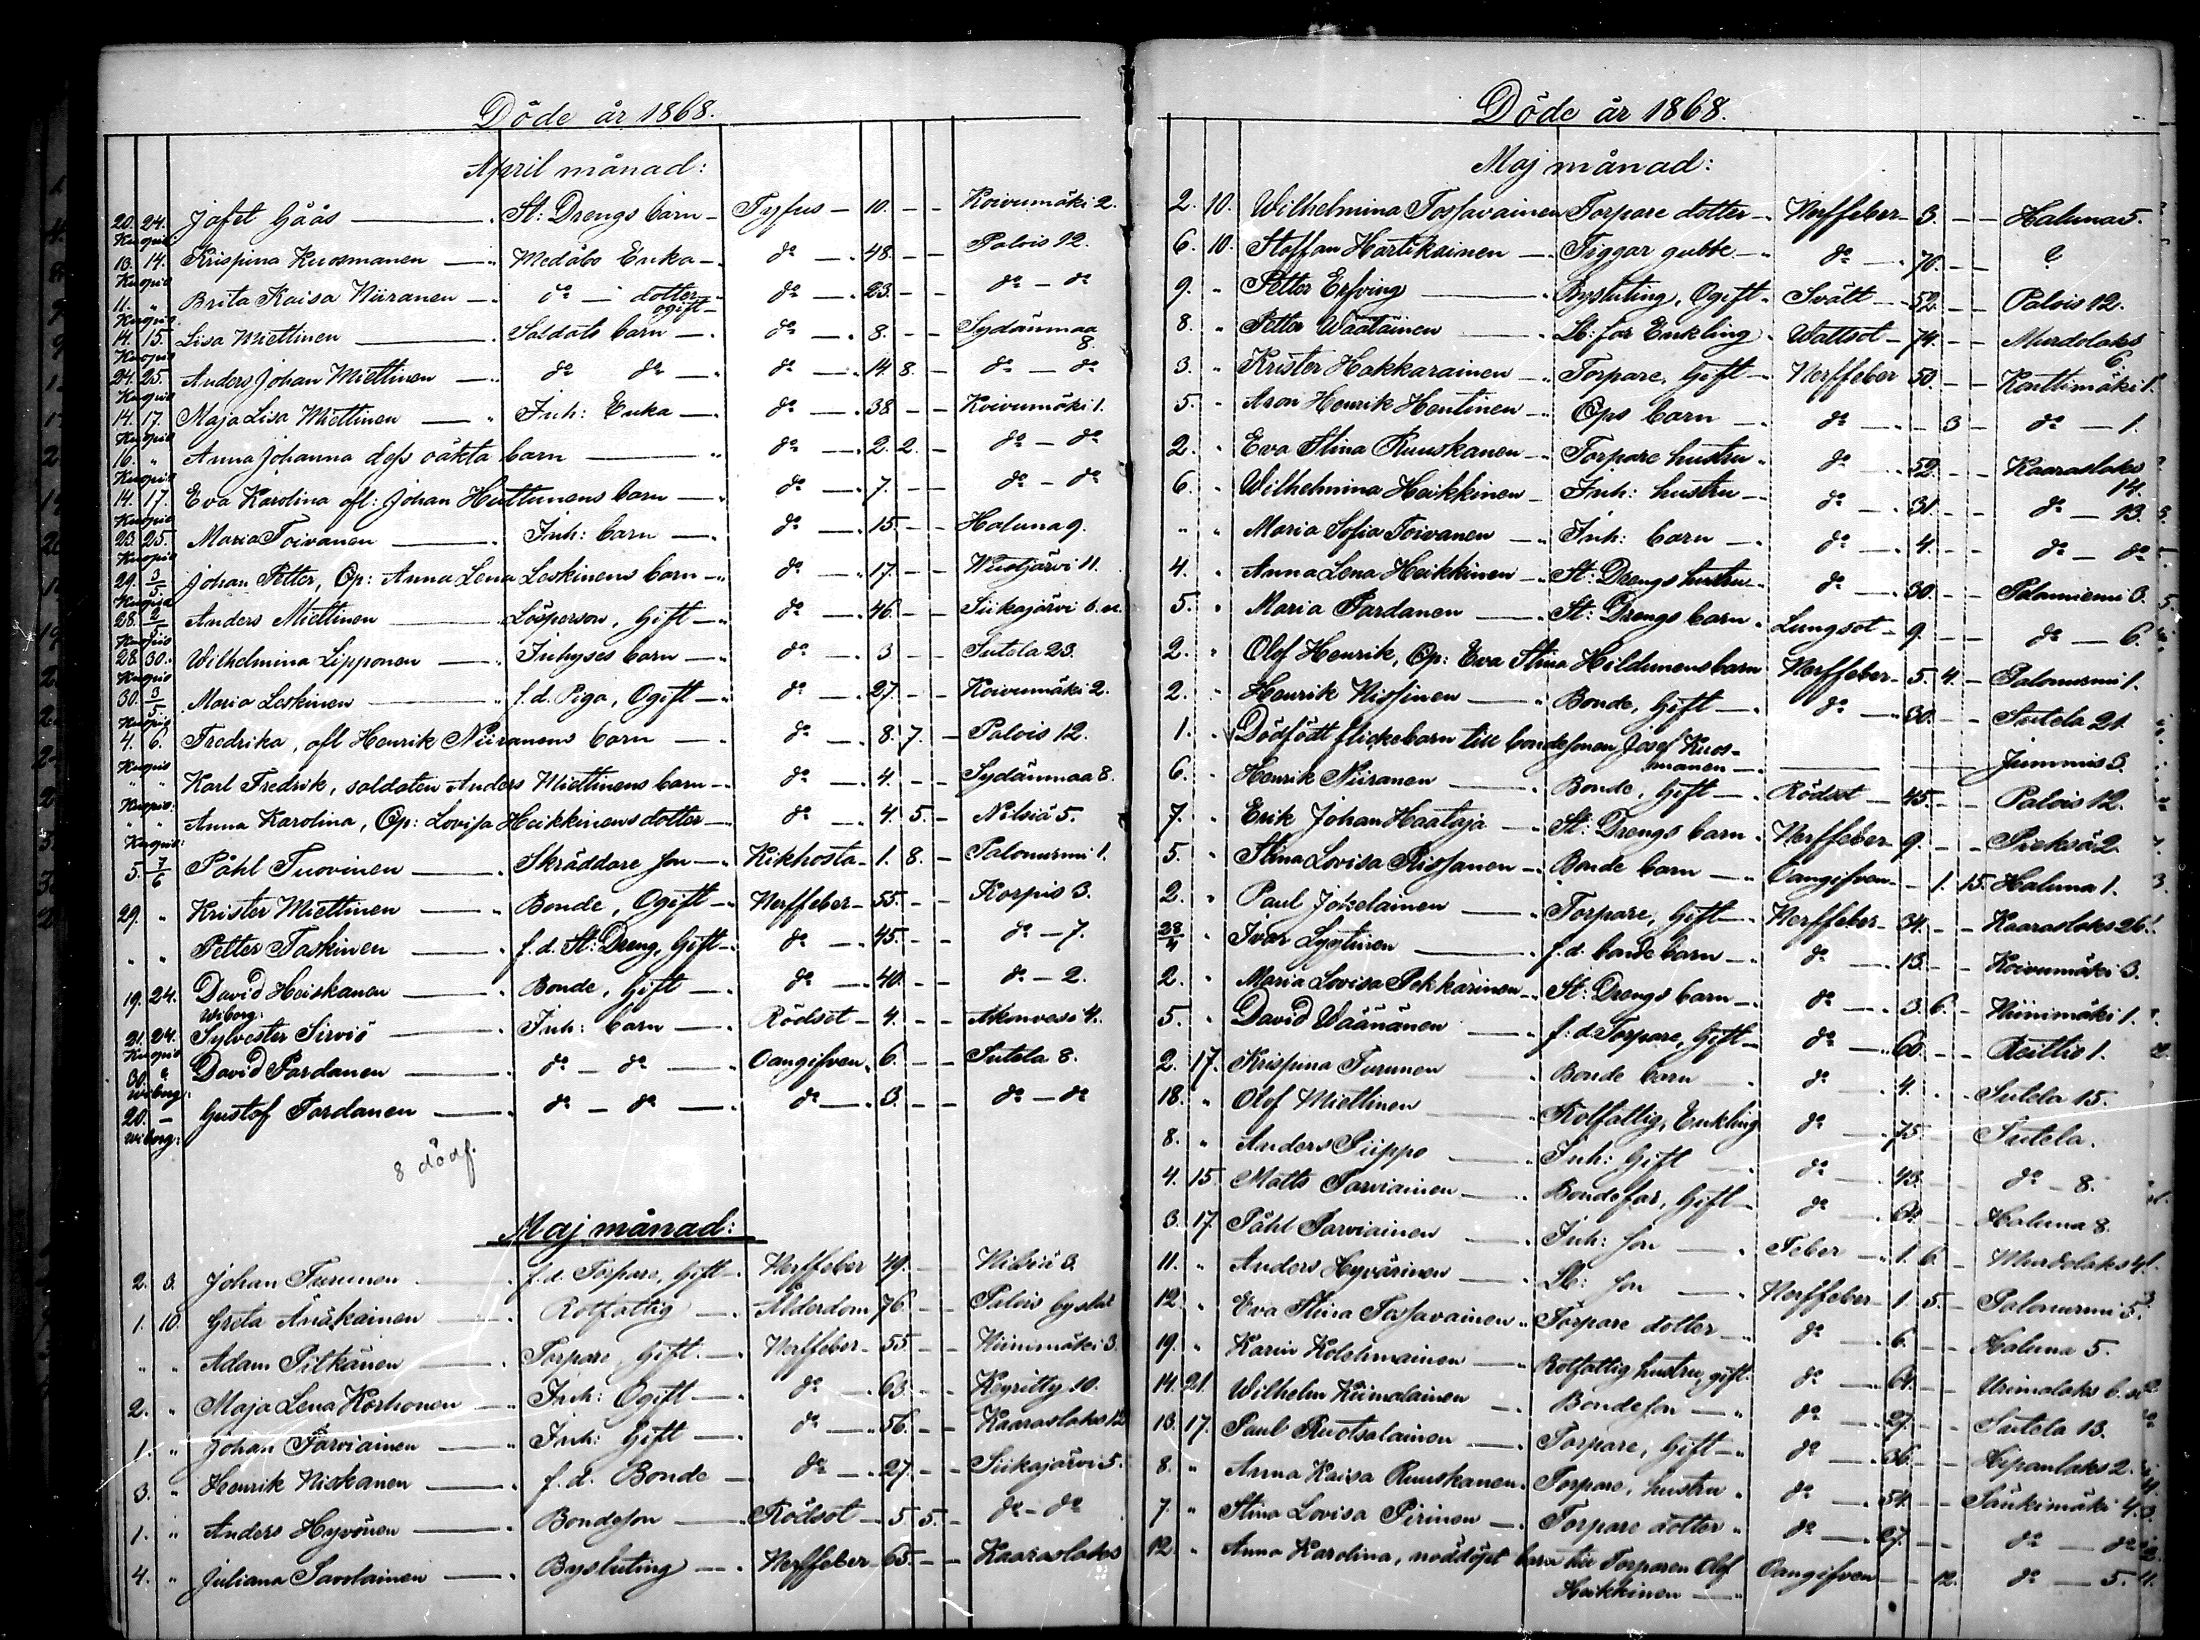 Döde år 1868.
April månad:
20. 24. Jafet Gåås — St: Drengs barn — Tyfus — 10. — — Koivumäki 2.
Kuopio
13. 14. Krispina Kuosmanen — Medåbo Enka — do — 48. — — Palois 12.
Kuopio
11. " Brita Kaisa Niiranen — do — dotter ogift — do — 23. — — do — do
Kuopio
14. 15. Lisa Miettinen — Soldats barn — do — 8. — — Sydänmaa 8.
Kuopio
24. 25. Anders Johan Miettinen — do do — do — 14. 8. — do — do
Kuopio
14. 17. Maja Lisa Miettinen — Inh: Enka — do — 38 — — Koivumäki 1.
Kuopio
16. " Anna Johanna dess oäkta barn — do — 2. 2. — do — do
Kuopio
14. 17. Eva Karolina afl: Johan Huttunens barn — do — 7. — — do — do
Kuopio
23. 25. Maria Toivanen — Inh: barn — do — 15. — — Haluna 9.
Kuopio
29. 3/5. Johan Petter, Qp: Anna Lena Leskinens barn — do — 17. — — Wuotjärvi 11.
Kuopio
28. 2/5 Anders Miettinen — Lösperson, Gift — do — 46. — — Siikajärvi 6.
Kuopio
28. 30. Wilhelmina Lipponen — Inhyses barn — do — 3 — — Sutela 23.
Kuopio
30. 3/5. Maria Leskinen — f.d. Piga, Ogift — do — 27. — — Koivumäki 2.
Kuopio
4. 6. Fredrika, afl Henrik Niiranens barn — do — 8. 7. — Palois 12.
Kuopio
" " Karl Fredrik, soldaten Anders Miettinens barn — do — 4. — — Sydänmaa 8.
Kuopio:
" " Anna Karolina, Qp: Lovisa Heikkinens dotter — do — 4. 5. — Nilsiä 5.
Kuopio:
5. 7/6 Påhl Tuovinen — Skräddare son — Kikhosta — 1. 8. — Palonurmi 1.
29. " Krister Miettinen — Bonde, Ogift — Nerffeber — 55. — — Korpis 3.
" " Petter Taskinen — f.d. St: Dreng, Gift — do — 45. — — do — 7.
19. 24. David Heiskanen — Bonde, Gift — do — 40. — — do — 2.
Wiborg:
21. 24. Sylvester Sirviö — Inh: barn — Rödsot — 4. — — Akonvesi 4.
Kuopio
30. " David Pardanen — do — do — Oangifven. 6. — — Sutela 8.
Wiborg:
20. — Gustof Pardanen — do — do — do — 3. — — do — do
Wiborg:
8 dödf.
Maj månad:
2. 3. Johan Turunen — f.d. Torpare, Gift — Nerffeber 49. — — Nilsiä 3.
1. 10. Greta Anäkainen — Rotfattig — Ålderdom 76. — — Palois
" " Adam Pitkänen — Torpare, Gift. — Nerffeber — 55. — — Niinimäki 3.
2. " Maja Lena Korhonen — Inh: Ogift — do — 63. — — Keyritty 10.
1. " Johan Parviainen — Inh: Gift — do — 56. — — Kaaraslaks 12
3. " Henrik Niskanen — f.d. Bonde — do — 27. — — Siikajärvi 5.
1. " Anders Hyvönen — Bondeson — Rödsot — 5. 5. — do — do
4. " Juliana Savolainen — Bysluting — Nerffeber — 65. — — Kaaraslaks
Döde år 1868.
Maj månad:
2. 10. Wilhelmina Tossavainen Torpare dotter — Nerffeber — 3. — — Haluna 5.
6. 10. Staffan Hartikainen — Tiggar gubbe — do — 70. — — ?
9. " Petter Erfving — Bysluting, Ogift — Svält — 52. — — Palois 12.
8. " Petter Väätäinen — Sb: far Enkling — Wattsot — 74. — — Murdolaks 6.
3. " Krister Hakkarainen — Torpare, Gift — Nerffeber 50. — — Konttimäki 1.
5. " Aron Henrik Hentinen — Qps barn — do — — 3 — do — 1.
2. " Eva Stina Ruuskanen — Torpare hustru — do — 52. — — Kaaraslaks 14.
6. " Wilhelmina Heikkinen — Inh: hustru — do — 31. — — do — 13.
" " Maria Sofia Toivanen — Inh: barn — do — 4. — — do — do
4. " Anna Lena Heikkinen — St: Drengs hustru — do — 30. — — Palomiemi 3.
5. " Maria Pardanen — St: Drengs barn — Lungsot — 9. — — do — 6.
2. " Olof Henrik, Qp: Eva Stina Hildunens barn Nerffeber — 5. 4. — Palonurmi 1.
2. " Henrik Nissinen — Bonde, Gift — do — 30. — — Sutela 21.
1. " Dödfödt flickebarn till bondesonen Josef Kuosmanen — — — Jummis 3.
6. " Henrik Niiranen — Bonde, Gift — Rödsot — 45. — — Palois 12.
7. " Erik Johan Haataja — St: Drengs barn — Nerffeber — 9. — — Pieksä 2.
5. " Stina Lovisa Rissanen — Bonde barn — Oangifven — — 1. 15. Haluna 1.
2. " Paul Jokelainen — Torpare, Gift — Nerffeber — 34. — — Kaaraslaks 26.
28/4 " Ivar Lyytinen — f.d. bonde barn — do — 13. — — Koivumäki 3.
2. " Maria Lovisa Pekkarinen — St: Drengs barn — do — 3. 6. — Niinimäki 1.
5. " David Väänänen — f:d: Torpare, Gift — do — 60. — — Reittio 1.
2. 17. Krispina Turunen — Bonde barn — do — 4. — — Sutela 15.
18. " Olof Miettinen — Rotfattig, Enkling do — 75. — — Sutela.
8. " Anders Piippo — Inh: Gift — do — 43. — — do — 8.
4. 15. Matts Parviainen — Bondefar, Gift — do — 64. — — Haluna 8.
3. 17. Påhl Parviainen — Inh: son — Feber — 1. 6. — Murdolaks 4.
11. " Anders Hyvärinen — Sb: son — Nerffeber — 1. 5. — Palonurmi 5.
12. " Eva Stina Tossavainen — Torpare dotter — do — 6. — — Haluna 5.
19. " Karin Kolehmainen — Rotfattig hustru, gift — do — 64. — — Urimolaks 6.
14. 21. Wilhelm Kiimalainen — Bondeson — do — 27. — — Sutela 13.
13. 17. Paul Ruotsalainen — Torpare, Gift — do — 36. — — Hipanlaks 2.
8. " Anna Kaisa Ruuskanen — Torpare, hustru — do — 54. — — Sänkimäki 4.
7. " Stina Lovisa Pirinen — Torpare dotter — do — 27. — — do — do
12. " Anna Karolina, nöddöpt barn till Torparen Olof Heikkinen — Oangifven — — 12. do — 5.